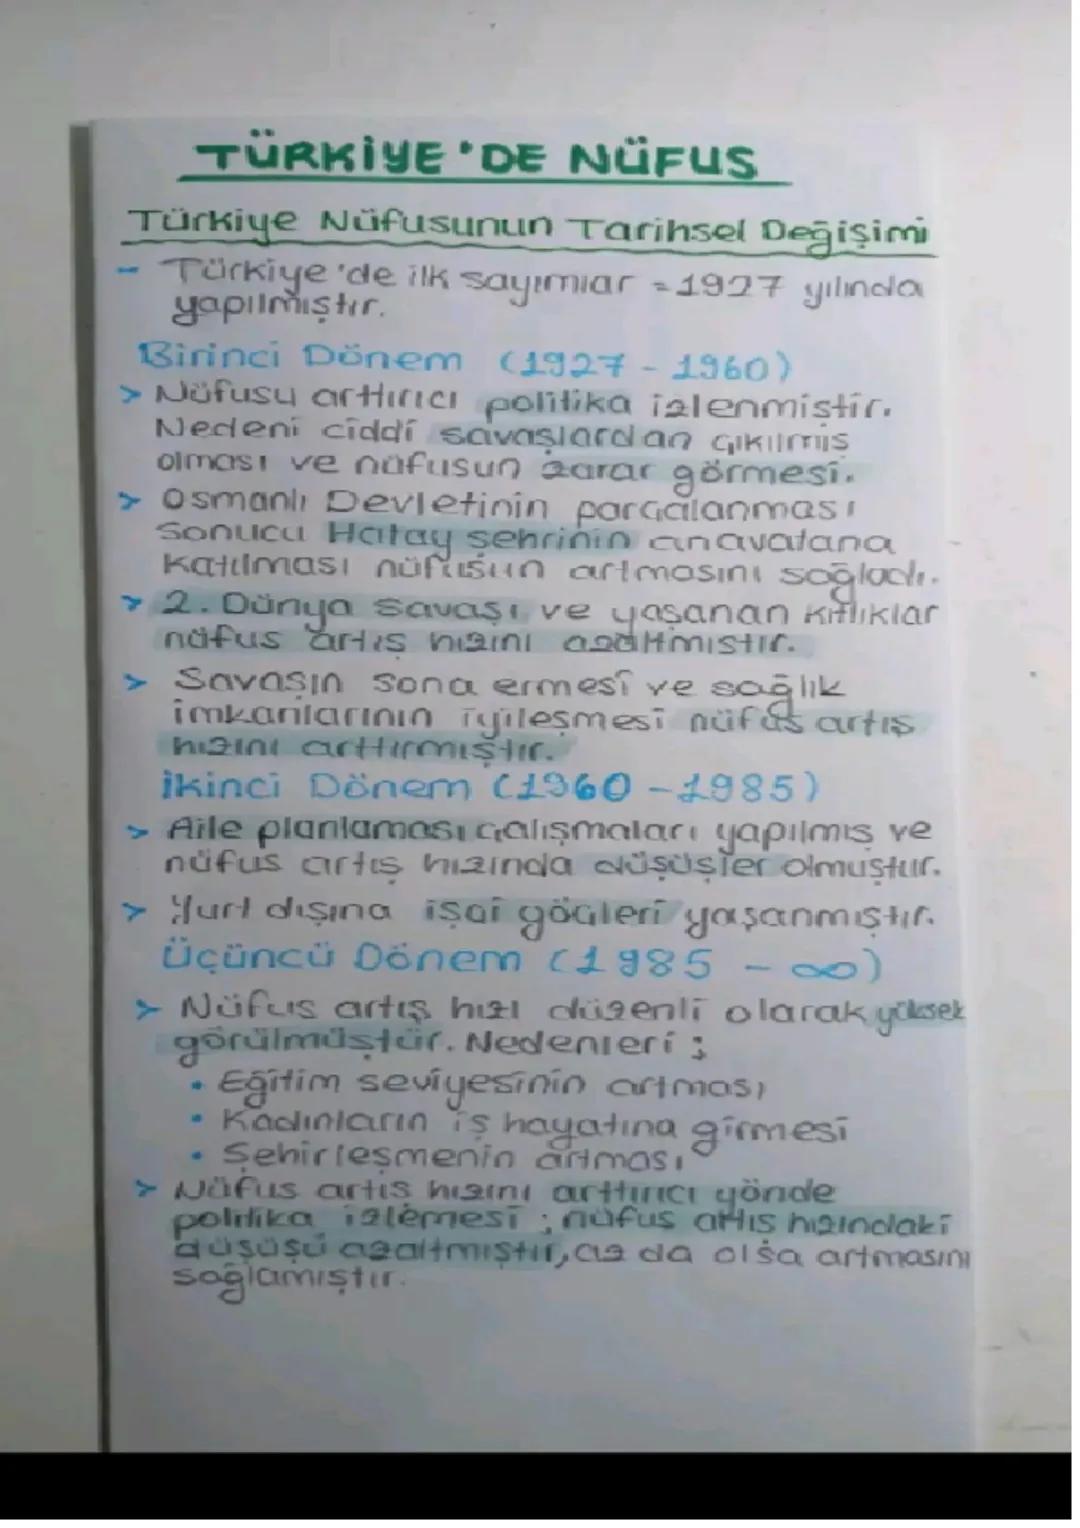 TÜRKİYE'DE NÜFUS
Türkiye Nüfusunun Tarihsel Değişimi
- Türkiye'de ilk sayımlar = 1927 yılında
yapılmıştır.
Birinci Dönem (1927 - 1960)
> Nüfusu arttırıcı politika izlenmiştir.
Nedeni ciddi savaşlardan çıkılmış
olması ve nüfusun zarar görmesi.
> Osmanlı Devletinin parçalanması
sonucu Hatay şehrinin anavatana
katılması nüfusun artmasını sağladı.
> 2. Dünya savaşı ve yaşanan kıtlıklar
nüfus artış hızını azaltmıştır.
> Savaşın sona ermesi ve sağlık
imkanlarının iyileşmesi nüfus artış
hızını arttırmıştır.
İkinci Dönem (1960 - 1985)
> Aile planlaması çalışmaları yapılmış ve
nüfus artış hızında düşüşler olmuştur.
> Yurt dışına işçi göçleri yaşanmıştır.
Üçüncü Dönem (1985 - ∞)
> Nüfus artış hızı düzenli olarak yüksek
görülmüştür. Nedenleri ;
• Eğitim seviyesinin artması
• Kadınların iş hayatına girmesi
• Şehirleşmenin artması
> Nüfus artış hızını arttırıcı yönde
politika izlemesi ; nüfus artış hızındaki
düşüşü azaltmıştır, az da olsa artmasını
sağlamıştır.